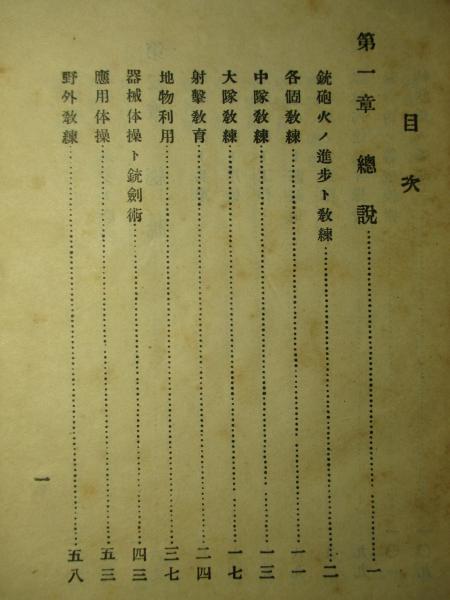 目次
第一章 總說……一
銃砲火ノ進步ト敎練……二
各個敎練……一一
中隊敎練……一三
大隊敎練……一七
射擊敎育……二四
地物利用……三七
器械体操ト銃劍術……四三
應用体操……五三
野外敎練……五八
一